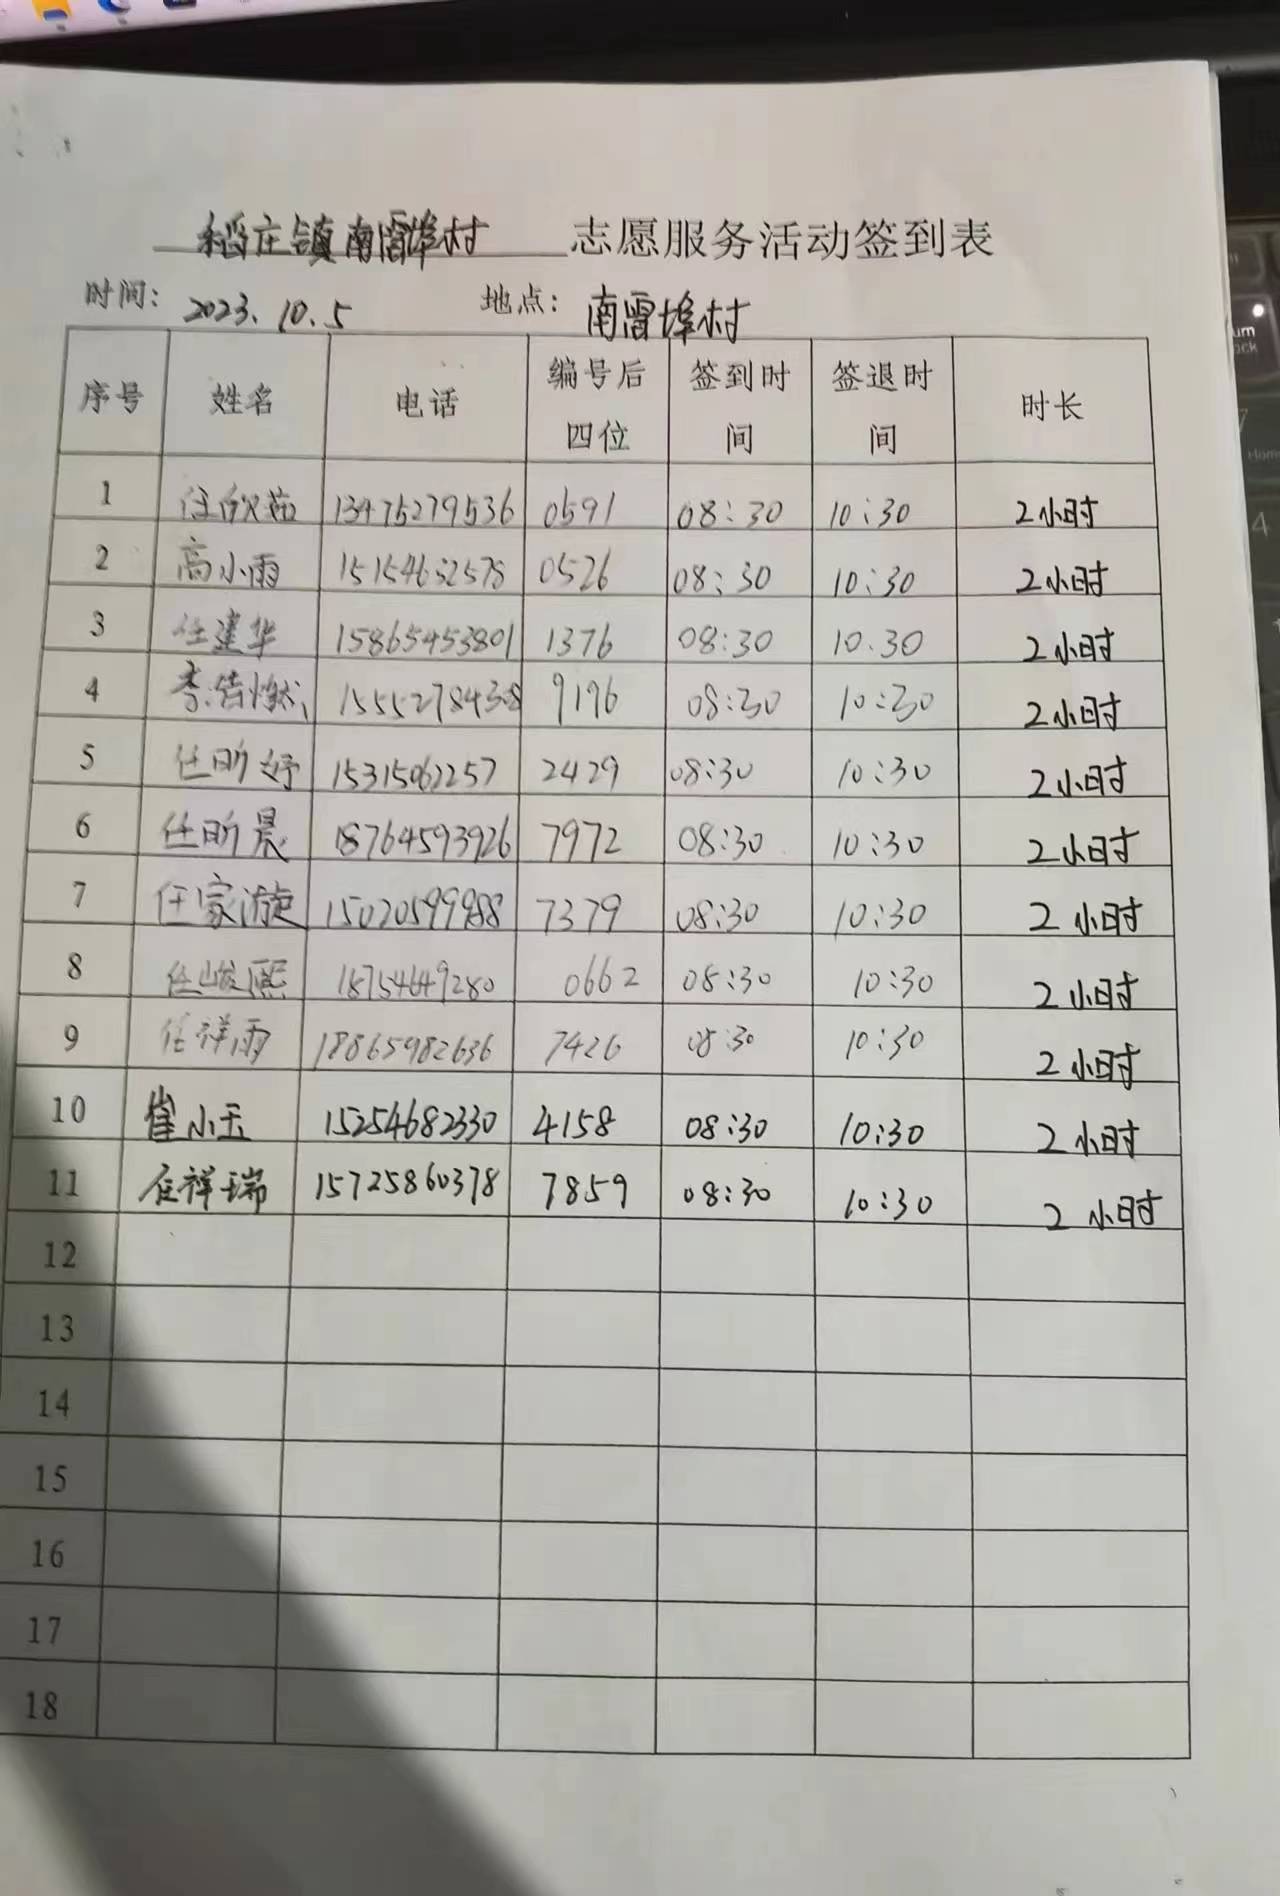 稻庄镇南雷埠村 志愿服务活动签到表
时间: 2023.10.5 地点: 南雷埠村
序号 姓名 电话 编号后四位 签到时间 签退时间 时长
1 任欣茹 13475279536 0591 08:30 10:30 2小时
2 高小雨 15154632578 0526 08:30 10:30 2小时
3 任建华 15865453801 1376 08:30 10.30 2小时
4 李浩然 15552784308 9196 08:30 10:30 2小时
5 任昕妤 15315062257 2429 08:30 10:30 2小时
6 任昕晨 18764593926 7972 08:30 10:30 2小时
7 任家漩 15020599988 7379 08:30 10:30 2小时
8 任峻熙 18754649280 0662 08:30 10:30 2小时
9 任祥雨 18865982636 7426 08:30 10:30 2小时
10 崔小玉 15254682330 4158 08:30 10:30 2小时
11 任祥瑞 15725860378 7859 08:30 10:30 2小时
12
13
14
15
16
17
18